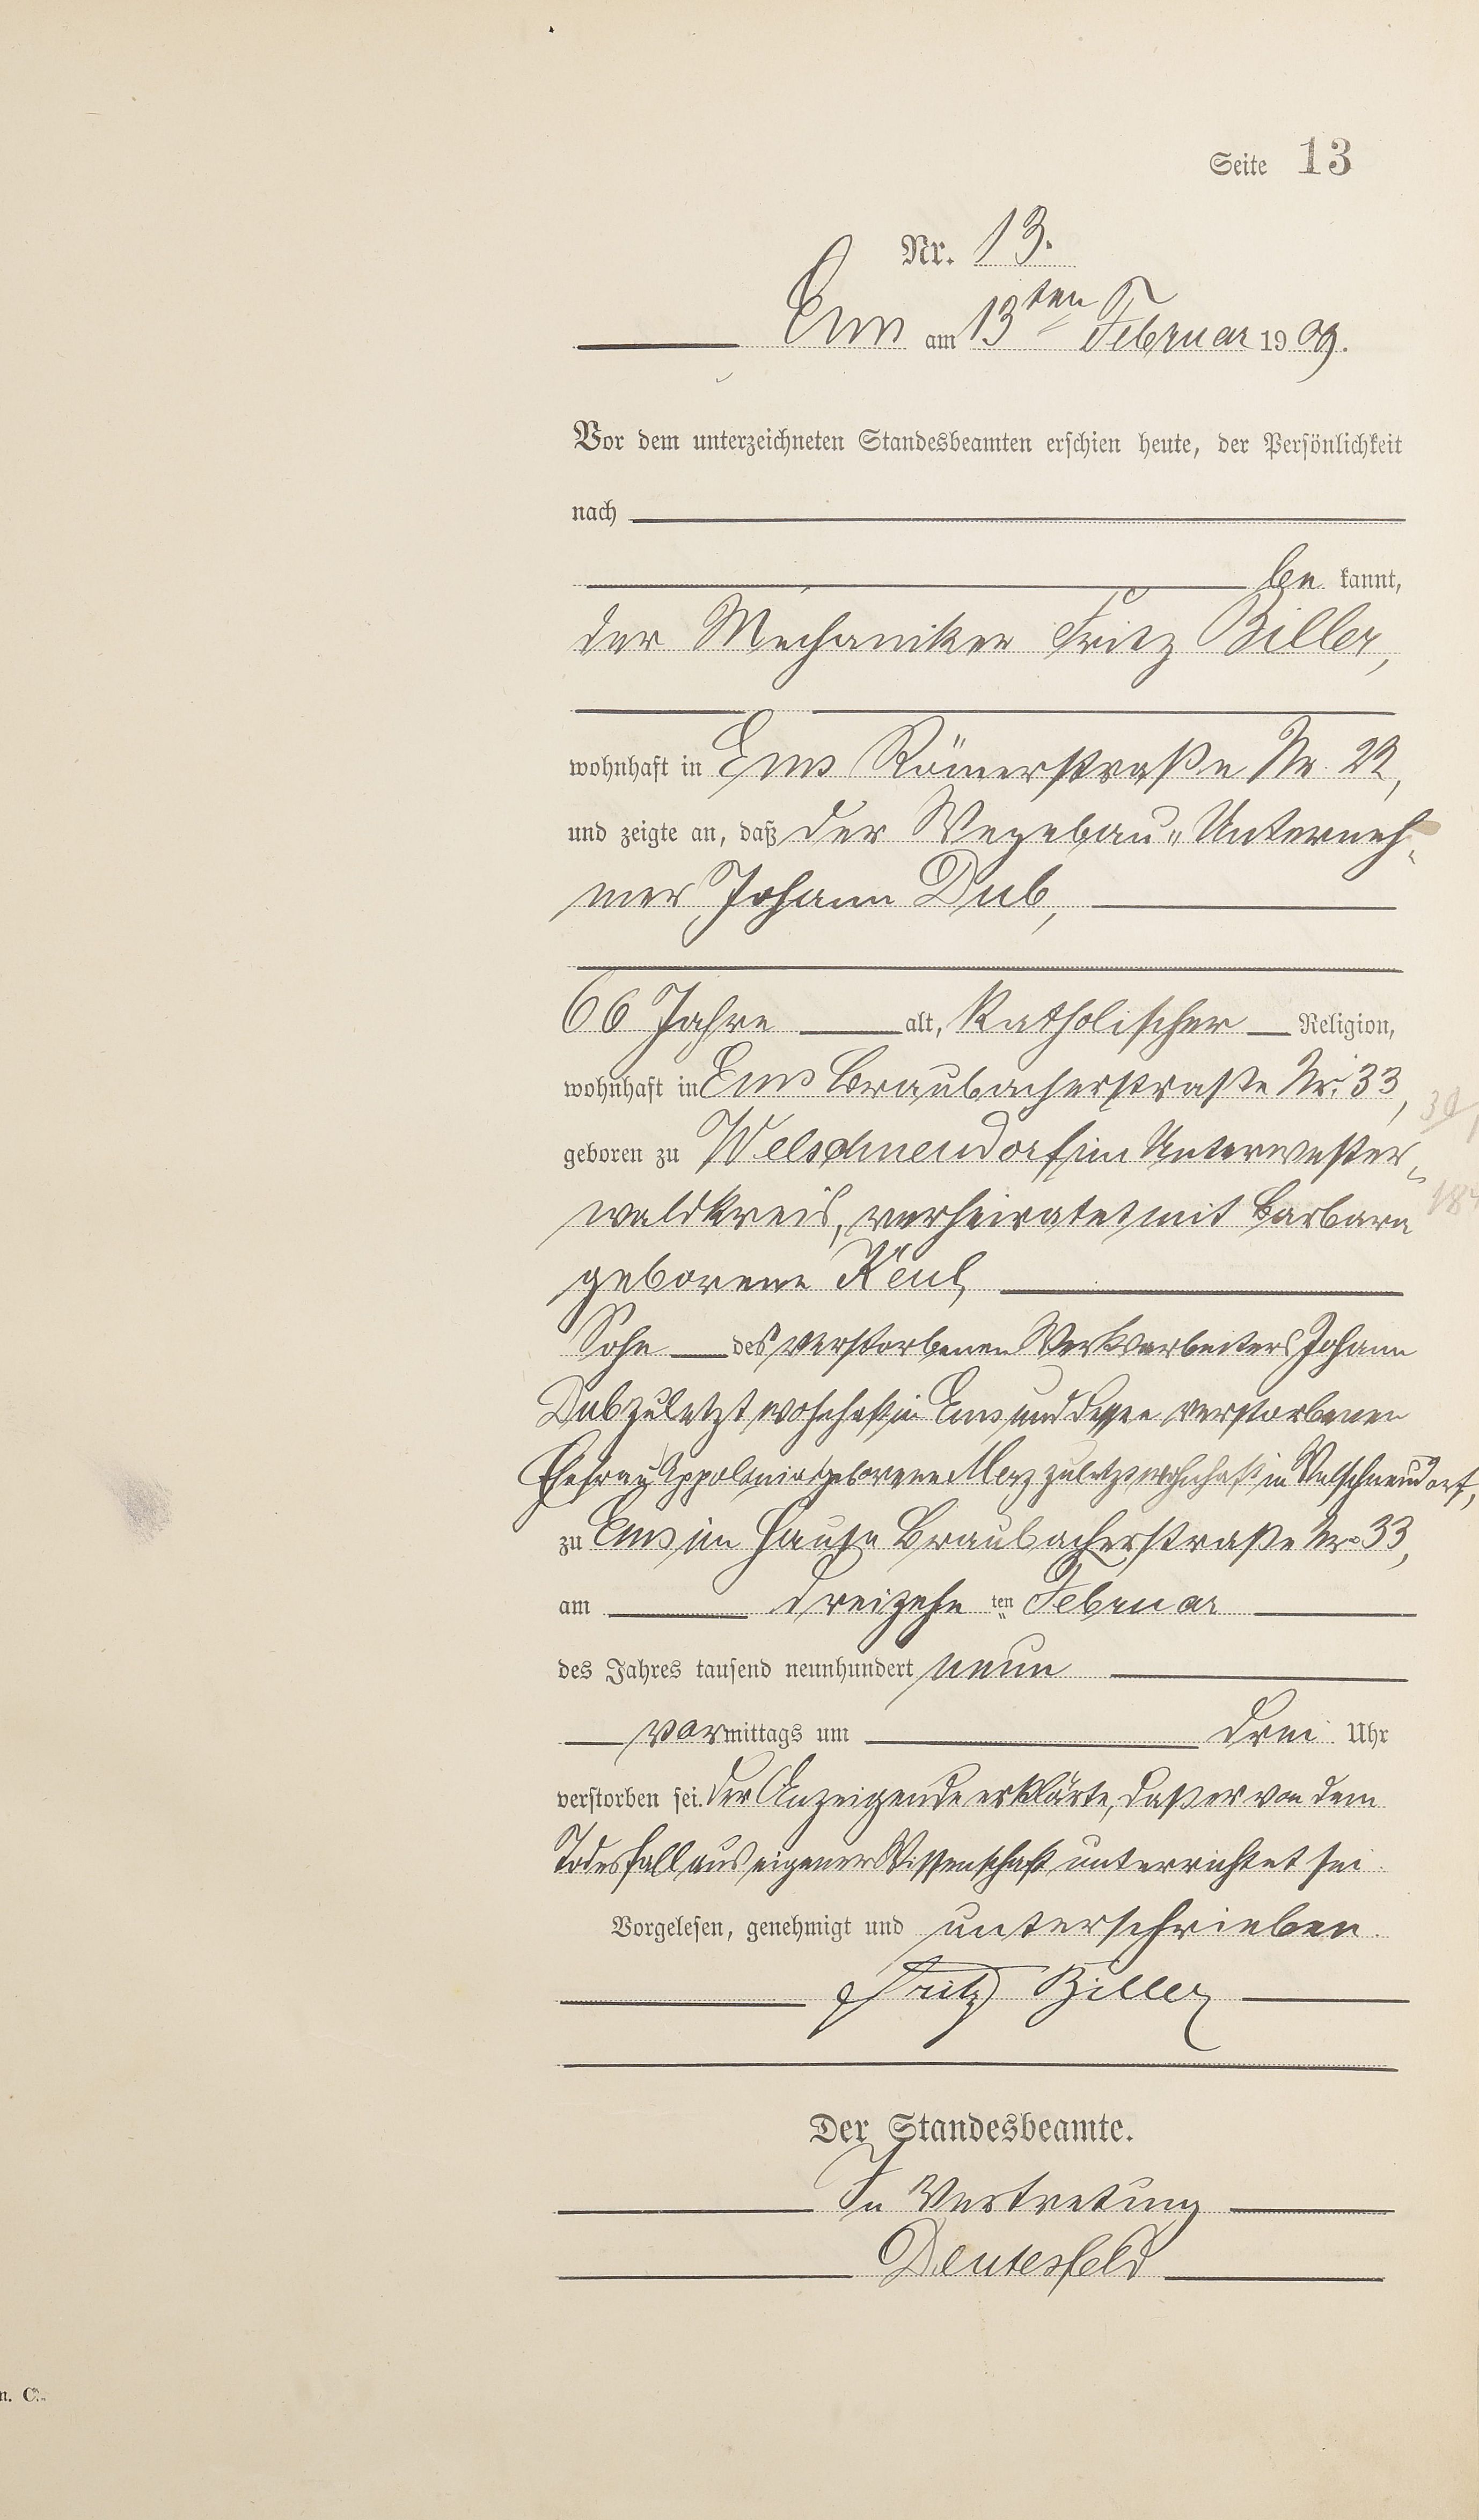 Seite 13
Nr. 13.
Ems am 13ten Februar 1909.
Vor dem unterzeichneten Standesbeamten erschien heute, der Persönlichkeit
nach
be kannt,
der Mechaniker Fritz Biller,
wohnhaft in Ems Römerstraße Nr. 22,
und zeigte an, daß der Wegebau-Unterneh-
mer Johann Dub,
66 Jahre alt, katholischer Religion,
wohnhaft in Ems Braubacherstraße Nr. 33,
geboren zu Welschneudorf im Unterwester-
waldkreis, verheiratet mit Barbara
geborene
Sohn des verstorbenen Werkarbeiters Johann
Dub zuletzt wohnhaft in Ems und dessen verstorbenen
Ehefrau Appolonia geborene Merz zuletzt wohnhaft in Welschneudorf,
zu Ems im Hause Braubacherstraße Nr. 33,
am dreizehn ten Februar
des Jahres tausend neunhundert neun
vormittags um drei Uhr
verstorben sei. Der Anzeigende erklärte, daß er von dem
Todesfall aus eigener Wissenschaft unterrichtet sei.
Vorgelesen, genehmigt und unterschrieben.
Fritz Biller
Der Standesbeamte.
In Vertretung
Deutesfeld